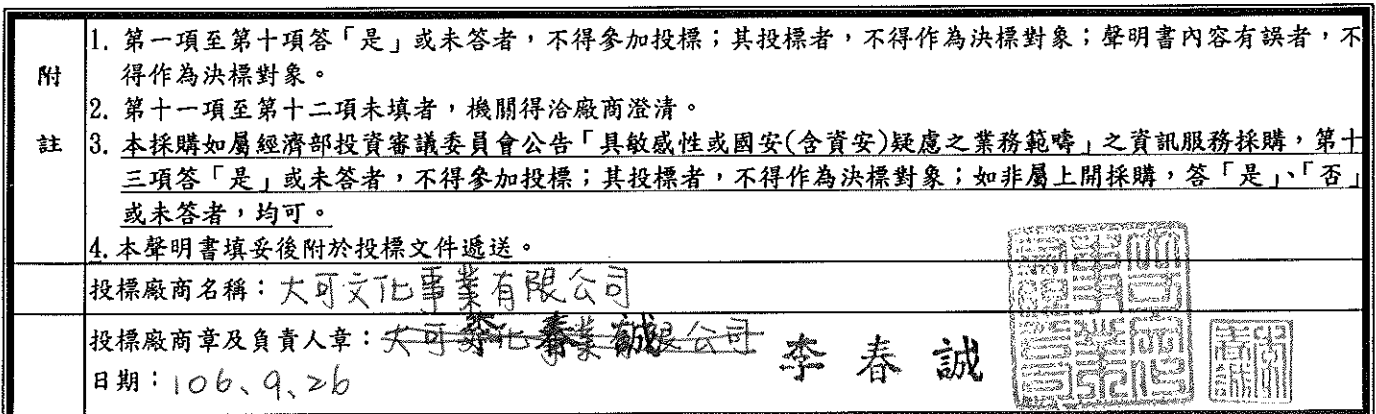 附
註
1. 第一項至第十項答「是」或未答者，不得參加投標；其投標者，不得作為決標對象；聲明書內容有誤者，不
得作為決標對象。
2. 第十一項至第十二項未填者，機關得洽廠商澄清。
3. 本採購如屬經濟部投資審議委員會公告「具敏感性或國安(含資安)疑慮之業務範疇」之資訊服務採購，第十
三項答「是」或未答者，不得參加投標；其投標者，不得作為決標對象；如非屬上開採購，答「是」、「否」
或未答者，均可。
4. 本聲明書填妥後附於投標文件遞送。
投標廠商名稱：大可文化事業有限公司
投標廠商章及負責人章：大可文化事業有限公司 李春誠 李春誠
日期：106、9、26